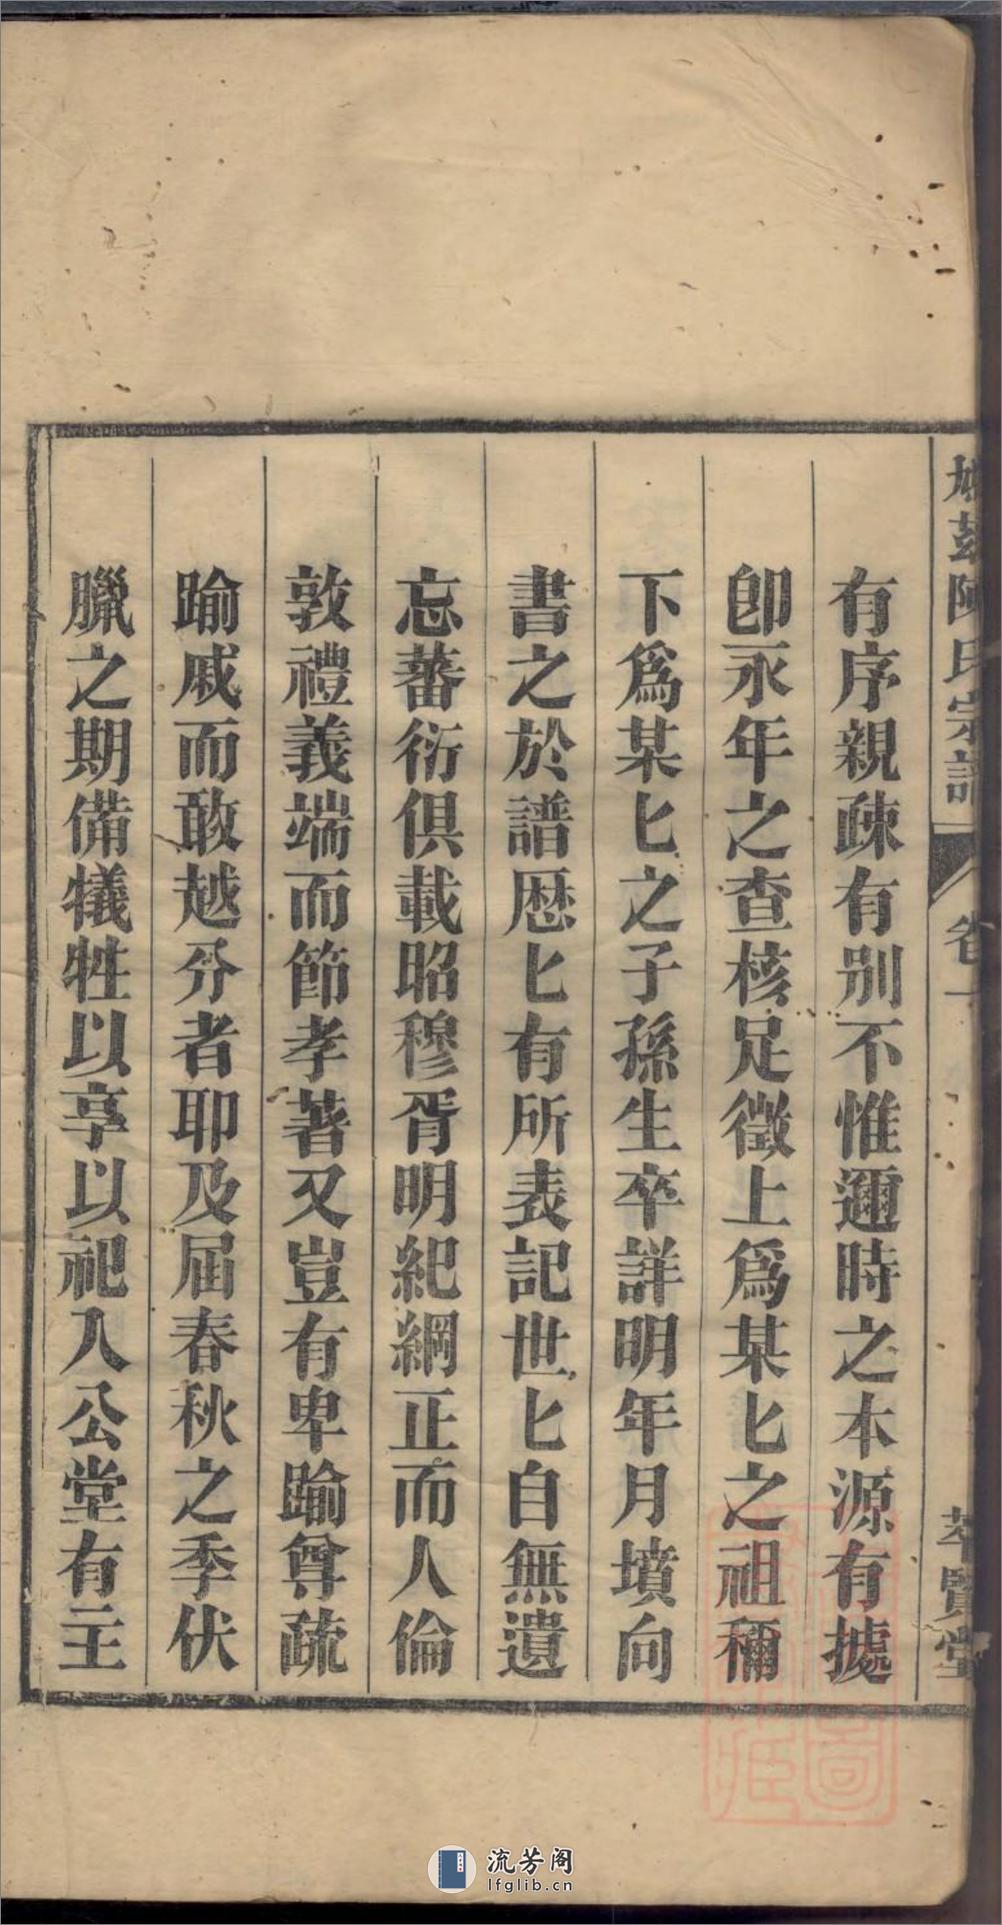 鳩茲陳氏宗譜 卷一 萃賢堂
有序親疎有別不惟邇時之本源有據
卽永年之查核足徵上爲某匕之祖禰
下爲某匕之子孫生卒詳明年月墳向
書之於譜歷匕有所表記世匕自無遺
忘蕃衍俱載昭穆胥明紀綱正而人倫
敦禮義端而節孝著又豈有卑踰尊疏
踰戚而敢越分者耶及屆春秋之季伏
臘之期備犧牲以享以祀入公堂有主
流芳阁
lfglib.cn